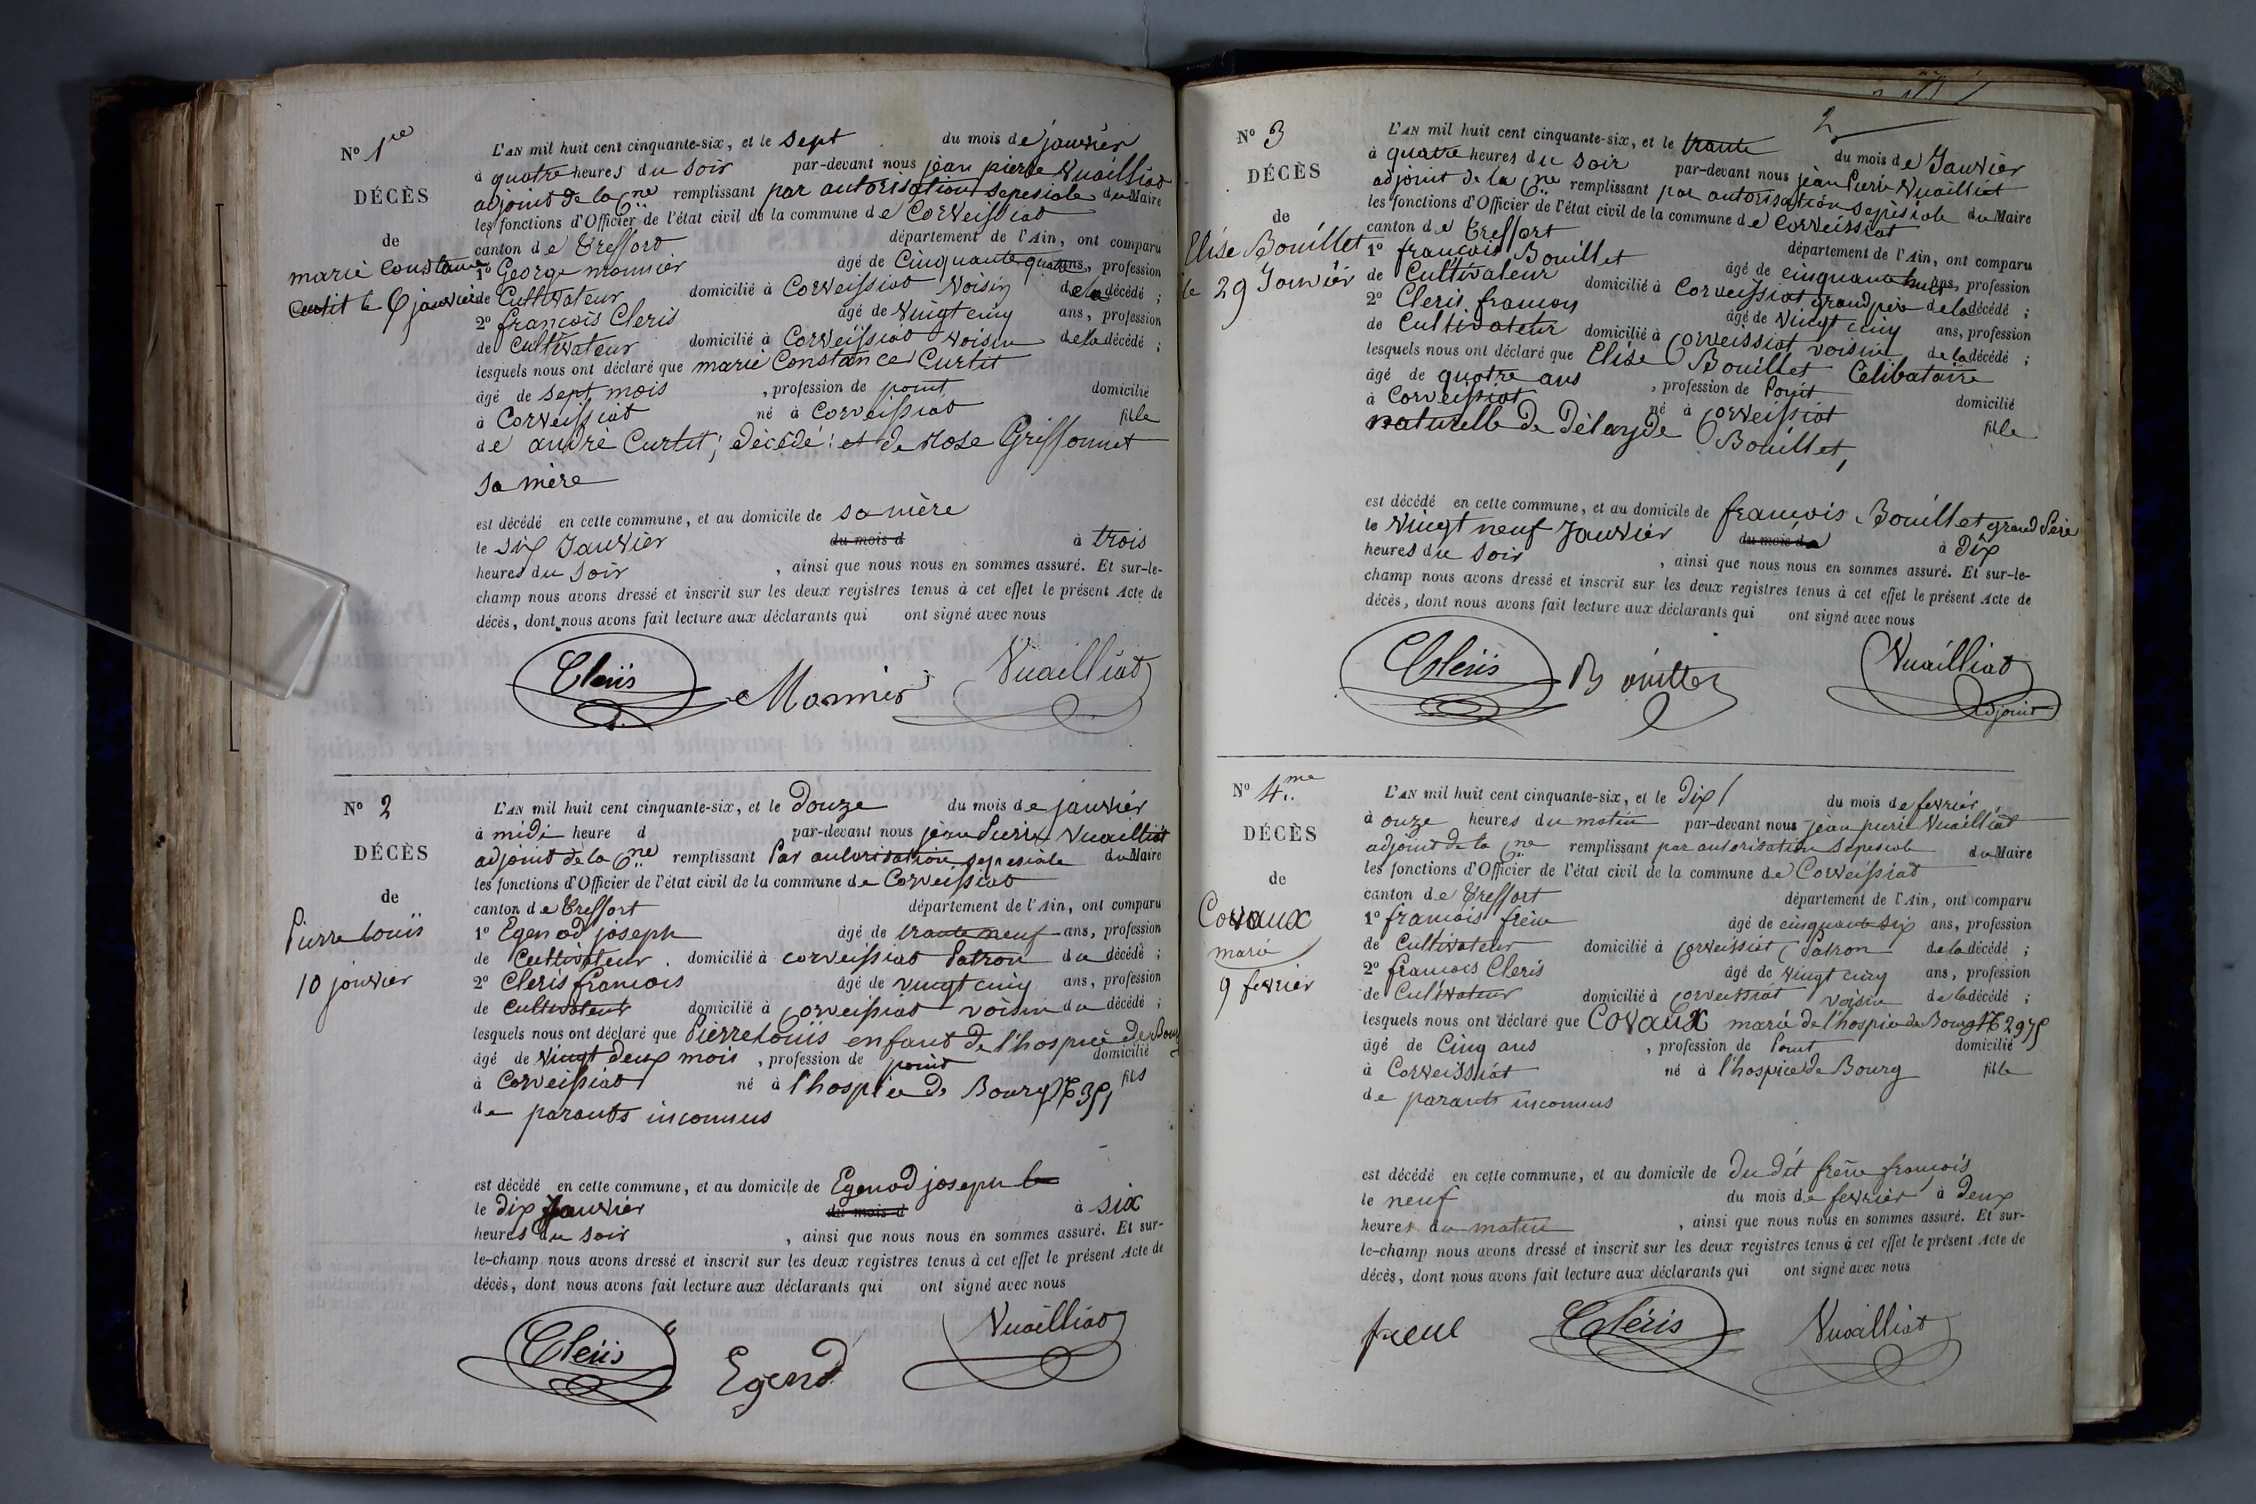 N° 1re
DÉCÈS
de
marie Constance
Curtit le 6 janvier
L'AN mil huit cent cinquante-six, et le sept du mois de janvier
à quatre heures du soir par-devant nous jean pierre Vuailliat
adjoint de la Cne remplissant par autorisation sepesiale du Maire
les fonctions d'Officier de l'état civil de la commune de Corveissiat
canton de Treffort département de l'Ain, ont comparu
1° George monnier âgé de Cinquante quatre ans, profession
de Cultivateur domicilié à Corveissiat Voisin de la décédé ;
2° françois Cleris âgé de Vingt cinq ans, profession
de Cultivateur domicilié à Corveissiat Voisin de la décédé ;
lesquels nous ont déclaré que marie Constance Curtit
âgé de sept mois , profession de point domicilié
à Corveissiat né à Corveissiat fille
de andré Curtit, décédé : et de Rose Griffonnet
sa mère
est décédé en cette commune, et au domicile de sa mère
le six Janvier du mois d à trois
heures du soir , ainsi que nous nous en sommes assuré. Et sur-le-
champ nous avons dressé et inscrit sur les deux registres tenus à cet effet le présent Acte de
décès, dont nous avons fait lecture aux déclarants qui ont signé avec nous
Cléris Monnier Vuailliat
N° 2
DÉCÈS
de
Pierre Louis
10 janvier
L'AN mil huit cent cinquante-six, et le douze du mois de janvier
à midi heure d par-devant nous jean Pierre Vuailliat
adjoint de la Cne remplissant Par autorisation sepesiale du Maire
les fonctions d'Officier de l'état civil de la commune de Corveissiat
canton de Treffort département de l'Ain, ont comparu
1° Egenod joseph âgé de trante neuf ans, profession
de Cultivateur domicilié à corveissiat Patron du décédé ;
2° Cleris françois âgé de vingt cinq ans, profession
de Cultivateur domicilié à Corveissiat voisin du décédé ;
lesquels nous ont déclaré que Pierre Louis enfant de l'hospice de Bourg
âgé de Vingt deux mois , profession de point domicilié
à Corveissiat né à l'hospice de Bourg N° 351 fils
de parants inconnus
est décédé en cette commune, et au domicile de Egenod joseph le
le dix Janvier du mois d à six
heures du soir , ainsi que nous nous en sommes assuré. Et sur-
le-champ nous avons dressé et inscrit sur les deux registres tenus à cet effet le présent Acte de
décès, dont nous avons fait lecture aux déclarants qui ont signé avec nous
Cléris Egenod Vuailliat
2
N° 3
DÉCÈS
de
Elise Bouillet
le 29 Janvier
L'AN mil huit cent cinquante-six, et le trante du mois de Janvier
à quatre heures du soir par-devant nous jean Pierre Vuailliat
adjoint de la Cne remplissant par autorisation sepesiale du Maire
les fonctions d'Officier de l'état civil de la commune de Corveissiat
canton de Treffort département de l'Ain, ont comparu
1° françois Bouillet âgé de cinquante huit ans, profession
de Cultivateur domicilié à Corveissiat grand père de la décédé ;
2° Cleris françois âgé de Vingt cinq ans, profession
de Cultivateur domicilié à Corveissiat voisin de la décédé ;
lesquels nous ont déclaré que Elise Bouillet Célibataire
âgé de quatre ans , profession de Point domicilié
à Corveissiat né à Corveissiat fille
naturelle de Délayde Bouillet,
est décédé en cette commune, et au domicile de françois Bouillet grand Père
le Vingt neuf Janvier du mois de à Dix
heures du soir , ainsi que nous nous en sommes assuré. Et sur-le-
champ nous avons dressé et inscrit sur les deux registres tenus à cet effet le présent Acte de
décès, dont nous avons fait lecture aux déclarants qui ont signé avec nous
Cléris Bouillet Vuailliat
adjoint
N° 4me
DÉCÈS
de
Covaux
marie
9 fevrier
L'AN mil huit cent cinquante-six, et le Dix du mois de fevrier
à onze heures du matin par-devant nous jean pierre Vuailliat
adjoint de la Cne remplissant par autorisation sepesiale du Maire
les fonctions d'Officier de l'état civil de la commune de Corveissiat
canton de Treffort département de l'Ain, ont comparu
1° francois frène âgé de cinquante six ans, profession
de Cultivateur domicilié à Corveissiat Patron de la décédé ;
2° francois Cleris âgé de vingt cinq ans, profession
de Cultivateur domicilié à Corveissiat voisin de la décédé ;
lesquels nous ont déclaré que Covaux marie de l'hospice de Bourg N° 2975
âgé de Cinq ans , profession de Point domicilié
à Corveissiat né à l'hospice de Bourg fille
de parants inconnus
est décédé en cette commune, et au domicile de du dit frène françois
le neuf du mois de fevrier à deux
heures du matin , ainsi que nous nous en sommes assuré. Et sur-
le-champ nous avons dressé et inscrit sur les deux registres tenus à cet effet le présent Acte de
décès, dont nous avons fait lecture aux déclarants qui ont signé avec nous
frene Cléris Vuailliat